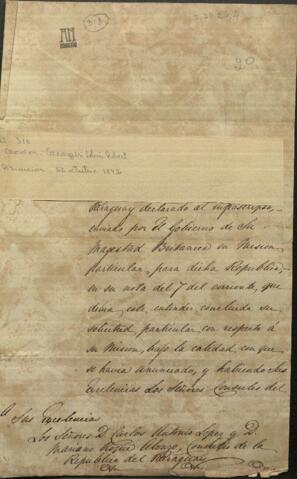 318
20
318
Asuncion, 22 octubre 1842
Paraguay declarado al infrascripto,
enviado por el Gobierno de Su
Magestad Britanica en Mision
particular, para dicha Republica,
en su nota del 7 del corriente, que
devia este entender concluida su
solicitud particular con respecto á
su Mision, bajo la calidad con que
se havia anunciado, y habiendo Sus
Excelencias Los Señores Consules del
A Sus Excelencias
Los Señores D. Carlos Antonio Lopez y D.
Mariano Roque Alonzo, Consules de la
Republica del Paraguay